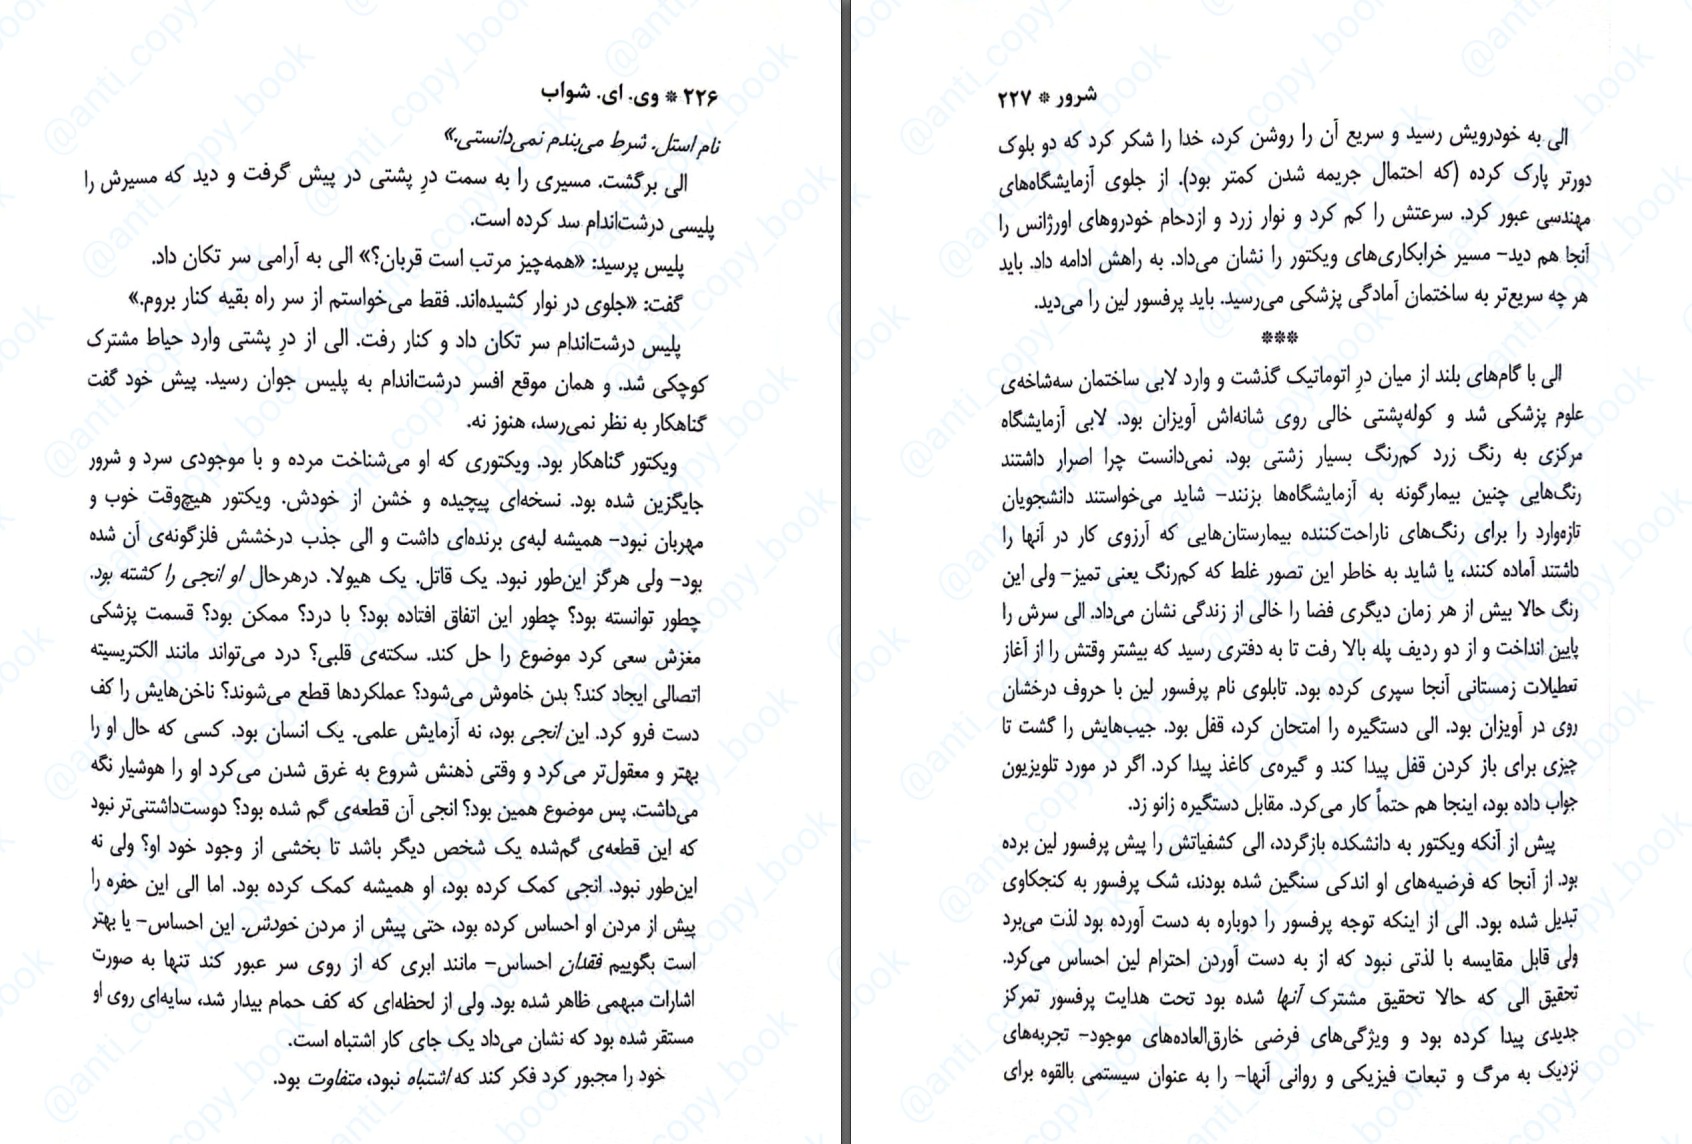 ۲۲۶ * وی. ای. شواب
نام استل. شرط می‌بندم نمی‌دانستی.»
الی برگشت. مسیری را به سمت درِ پشتی در پیش گرفت و دید که مسیرش را
پلیسی درشت‌اندام سد کرده است.
پلیس پرسید: «همه‌چیز مرتب است قربان؟» الی به آرامی سر تکان داد.
گفت: «جلوی در نوار کشیده‌اند. فقط می‌خواستم از سر راه بقیه کنار بروم.»
پلیس درشت‌اندام سر تکان داد و کنار رفت. الی از درِ پشتی وارد حیاط مشترک
کوچکی شد. و همان موقع افسر درشت‌اندام به پلیس جوان رسید. پیش خود گفت
گناهکار به نظر نمی‌رسد، هنوز نه.
ویکتور گناهکار بود. ویکتوری که او می‌شناخت مرده و با موجودی سرد و شرور
جایگزین شده بود. نسخه‌ای پیچیده و خشن از خودش. ویکتور هیچ‌وقت خوب و
مهربان نبود- همیشه لبه‌ی برنده‌ای داشت و الی جذب درخشش فلزگونه‌ی آن شده
بود- ولی هرگز این‌طور نبود. یک قاتل. یک هیولا. درهرحال او انجی را کشته بود.
چطور توانسته بود؟ چطور این اتفاق افتاده بود؟ با درد؟ ممکن بود؟ قسمت پزشکی
مغزش سعی کرد موضوع را حل کند. سکته‌ی قلبی؟ درد می‌تواند مانند الکتریسیته
اتصالی ایجاد کند؟ بدن خاموش می‌شود؟ عملکردها قطع می‌شوند؟ ناخن‌هایش را کف
دست فرو کرد. این انجی بود، نه آزمایش علمی. یک انسان بود. کسی که حال او را
بهتر و معقول‌تر می‌کرد و وقتی ذهنش شروع به غرق شدن می‌کرد او را هوشیار نگه
می‌داشت. پس موضوع همین بود؟ انجی آن قطعه‌ی گم شده بود؟ دوست‌داشتنی‌تر نبود
که این قطعه‌ی گم‌شده یک شخص دیگر باشد تا بخشی از وجود خود او؟ ولی نه
این‌طور نبود. انجی کمک کرده بود، او همیشه کمک کرده بود. اما الی این حفره را
پیش از مردن او احساس کرده بود، حتی پیش از مردن خودش. این احساس- یا بهتر
است بگوییم فقدان احساس- مانند ابری که از روی سر عبور کند تنها به صورت
اشارات مبهمی ظاهر شده بود. ولی از لحظه‌ای که کف حمام بیدار شد، سایه‌ای روی او
مستقر شده بود که نشان می‌داد یک جای کار اشتباه است.
خود را مجبور کرد فکر کند که اشتباه نبود، متفاوت بود.
شرور * ۲۲۷
الی به خودرویش رسید و سریع آن را روشن کرد، خدا را شکر کرد که دو بلوک
دورتر پارک کرده (که احتمال جریمه شدن کمتر بود). از جلوی آزمایشگاه‌های
مهندسی عبور کرد. سرعتش را کم کرد و نوار زرد و ازدحام خودروهای اورژانس را
آنجا هم دید- مسیر خرابکاری‌های ویکتور را نشان می‌داد. به راهش ادامه داد. باید
هر چه سریع‌تر به ساختمان آمادگی پزشکی می‌رسید. باید پرفسور لین را می‌دید.
***
الی با گام‌های بلند از میان درِ اتوماتیک گذشت و وارد لابی ساختمان سه‌شاخه‌ی
علوم پزشکی شد و کوله‌پشتی خالی روی شانه‌اش آویزان بود. لابی آزمایشگاه
مرکزی به رنگ زرد کم‌رنگ بسیار زشتی بود. نمی‌دانست چرا اصرار داشتند
رنگ‌هایی چنین بیمارگونه به آزمایشگاه‌ها بزنند- شاید می‌خواستند دانشجویان
تازه‌وارد را برای رنگ‌های ناراحت‌کننده بیمارستان‌هایی که آرزوی کار در آنها را
داشتند آماده کنند، یا شاید به خاطر این تصور غلط که کم‌رنگ یعنی تمیز- ولی این
رنگ حالا بیش از هر زمان دیگری فضا را خالی از زندگی نشان می‌داد. الی سرش را
پایین انداخت و از دو ردیف پله بالا رفت تا به دفتری رسید که بیشتر وقتش را از آغاز
تعطیلات زمستانی آنجا سپری کرده بود. تابلوی نام پرفسور لین با حروف درخشان
روی در آویزان بود. الی دستگیره را امتحان کرد، قفل بود. جیب‌هایش را گشت تا
چیزی برای باز کردن قفل پیدا کند و گیره‌ی کاغذ پیدا کرد. اگر در مورد تلویزیون
جواب داده بود، اینجا هم حتماً کار می‌کرد. مقابل دستگیره زانو زد.
پیش از آنکه ویکتور به دانشکده بازگردد، الی کشفیاتش را پیش پرفسور لین برده
بود. از آنجا که فرضیه‌های او اندکی سنگین شده بودند، شک پرفسور به کنجکاوی
تبدیل شده بود. الی از اینکه توجه پرفسور را دوباره به دست آورده بود لذت می‌برد
ولی قابل مقایسه با لذتی نبود که از به دست آوردن احترام لین احساس می‌کرد.
تحقیق الی که حالا تحقیق مشترک آنها شده بود تحت هدایت پرفسور تمرکز
جدیدی پیدا کرده بود و ویژگی‌های فرضی خارق‌العاده‌های موجود- تجربه‌های
نزدیک به مرگ و تبعات فیزیکی و روانی آنها- را به عنوان سیستمی بالقوه برای
@anti_copy_book